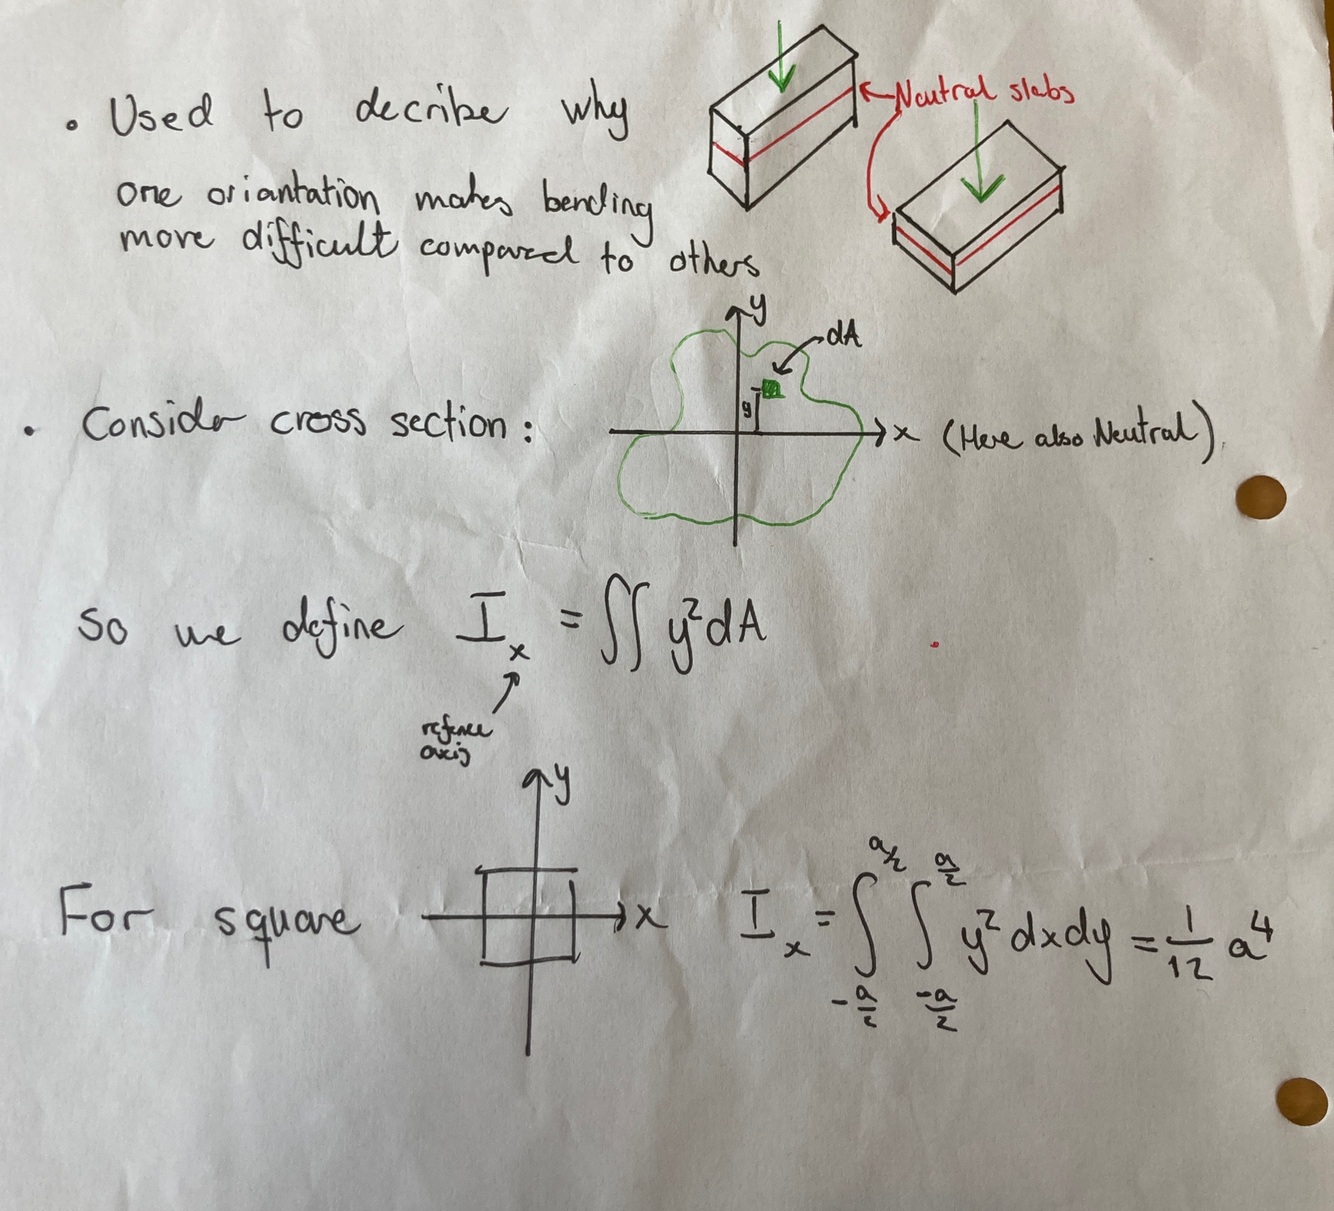 • Used to decribe why
one oriantation makes bending
more difficult compared to others
Neutral slabs
y
dA
y
• Consider cross section :
x (Here also Neutral).
So we define I_x = ∬ y²dA
refence
axis
y
For square
x
I_x = ∫_{-a/2}^{a/2} ∫_{-a/2}^{a/2} y² dxdy = 1/12 a⁴